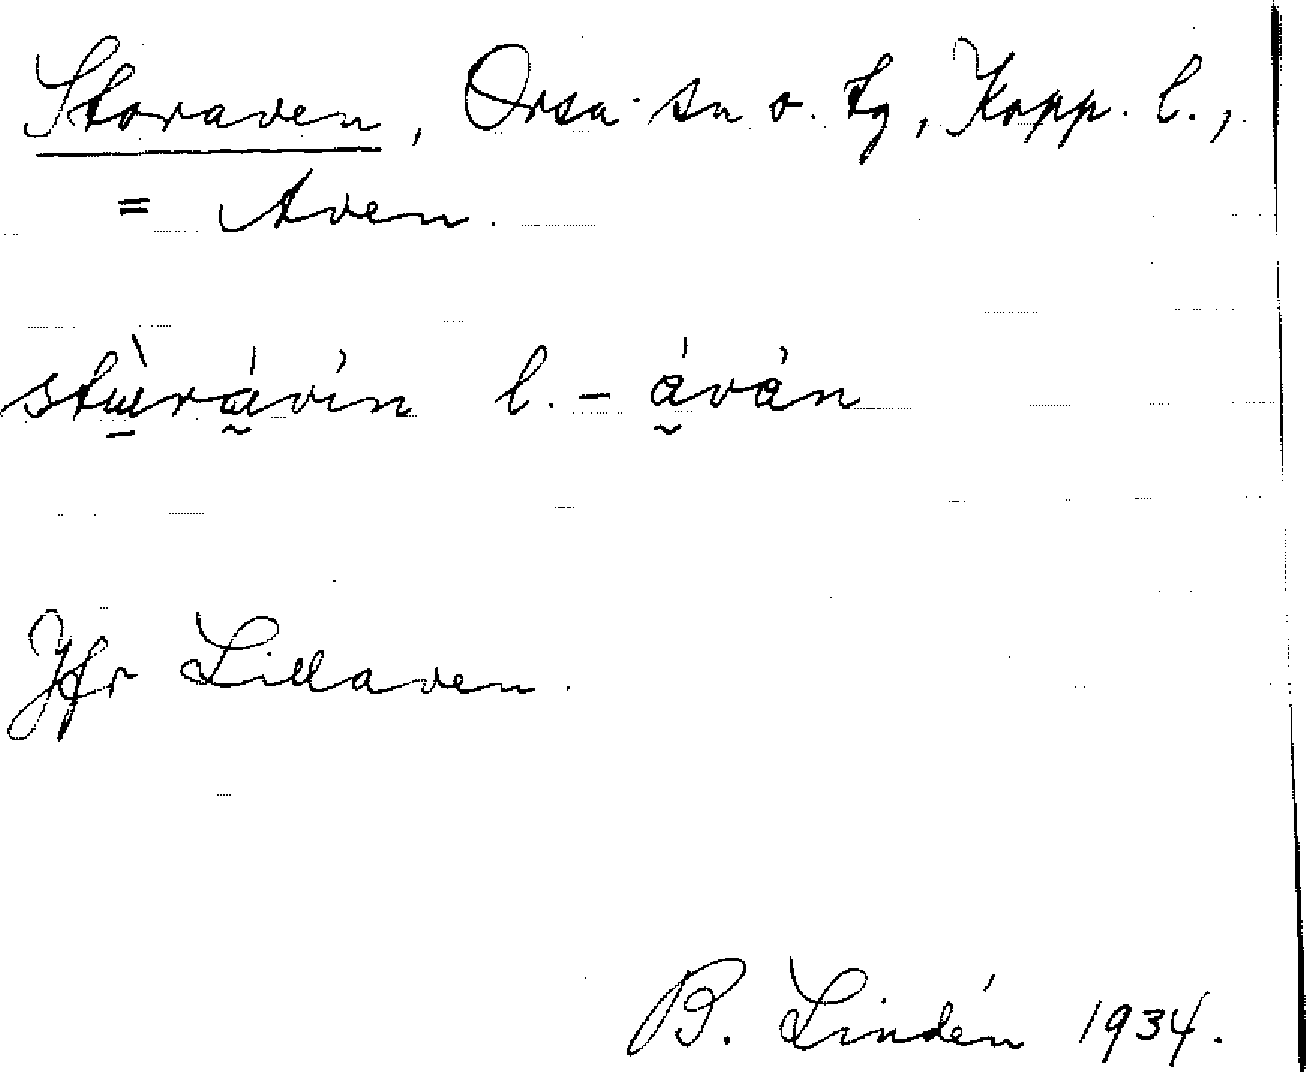 Storaven, Orsa sn o. tg, Kopp. l.,
= Aven.
stɯ̠̀rá̰vín l. - á̰ván
Jfr Lillaven.
B. Lindén 1934.